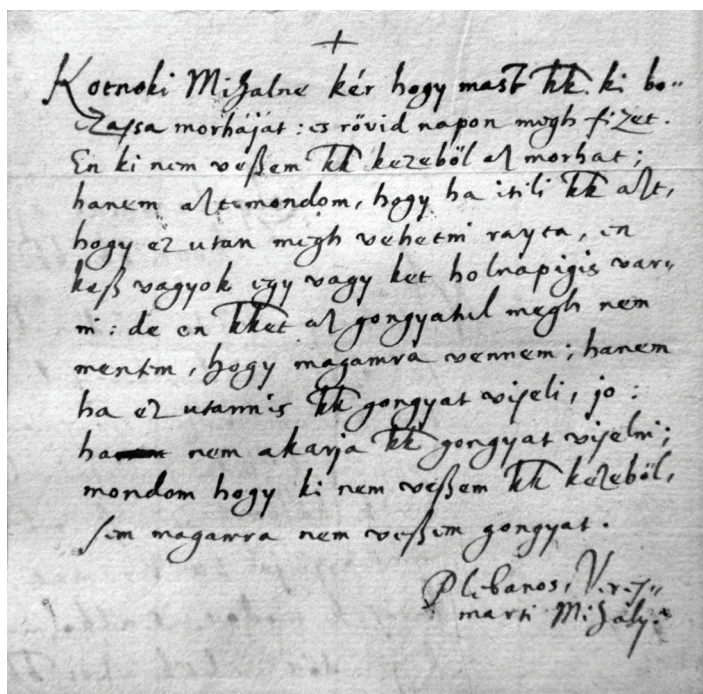 Kotnoki Mihalne kér hogy mast kk. ki bo=
czassa morháját: es rövid napon megh fizet.
En ki nem veßem kk kezeböl az morhat;
hanem azt mondom, hogy ha itili kk azt,
hogy ez utan megh veheti rayta, en
keß vagyok egy vagy ket holnapigis var=
ni: de en kket az gongyatul megh nem
mentem, hogy magamra vennem; hanem
ha ez utannis kk gongyat viseli, jo:
ha nem akarja kk gongyat viselni;
mondom hogy ki nem veßem kk kezeböl,
sem magamra nem veßem gongyat.
Plebanos, Veres=
marti Mihály.